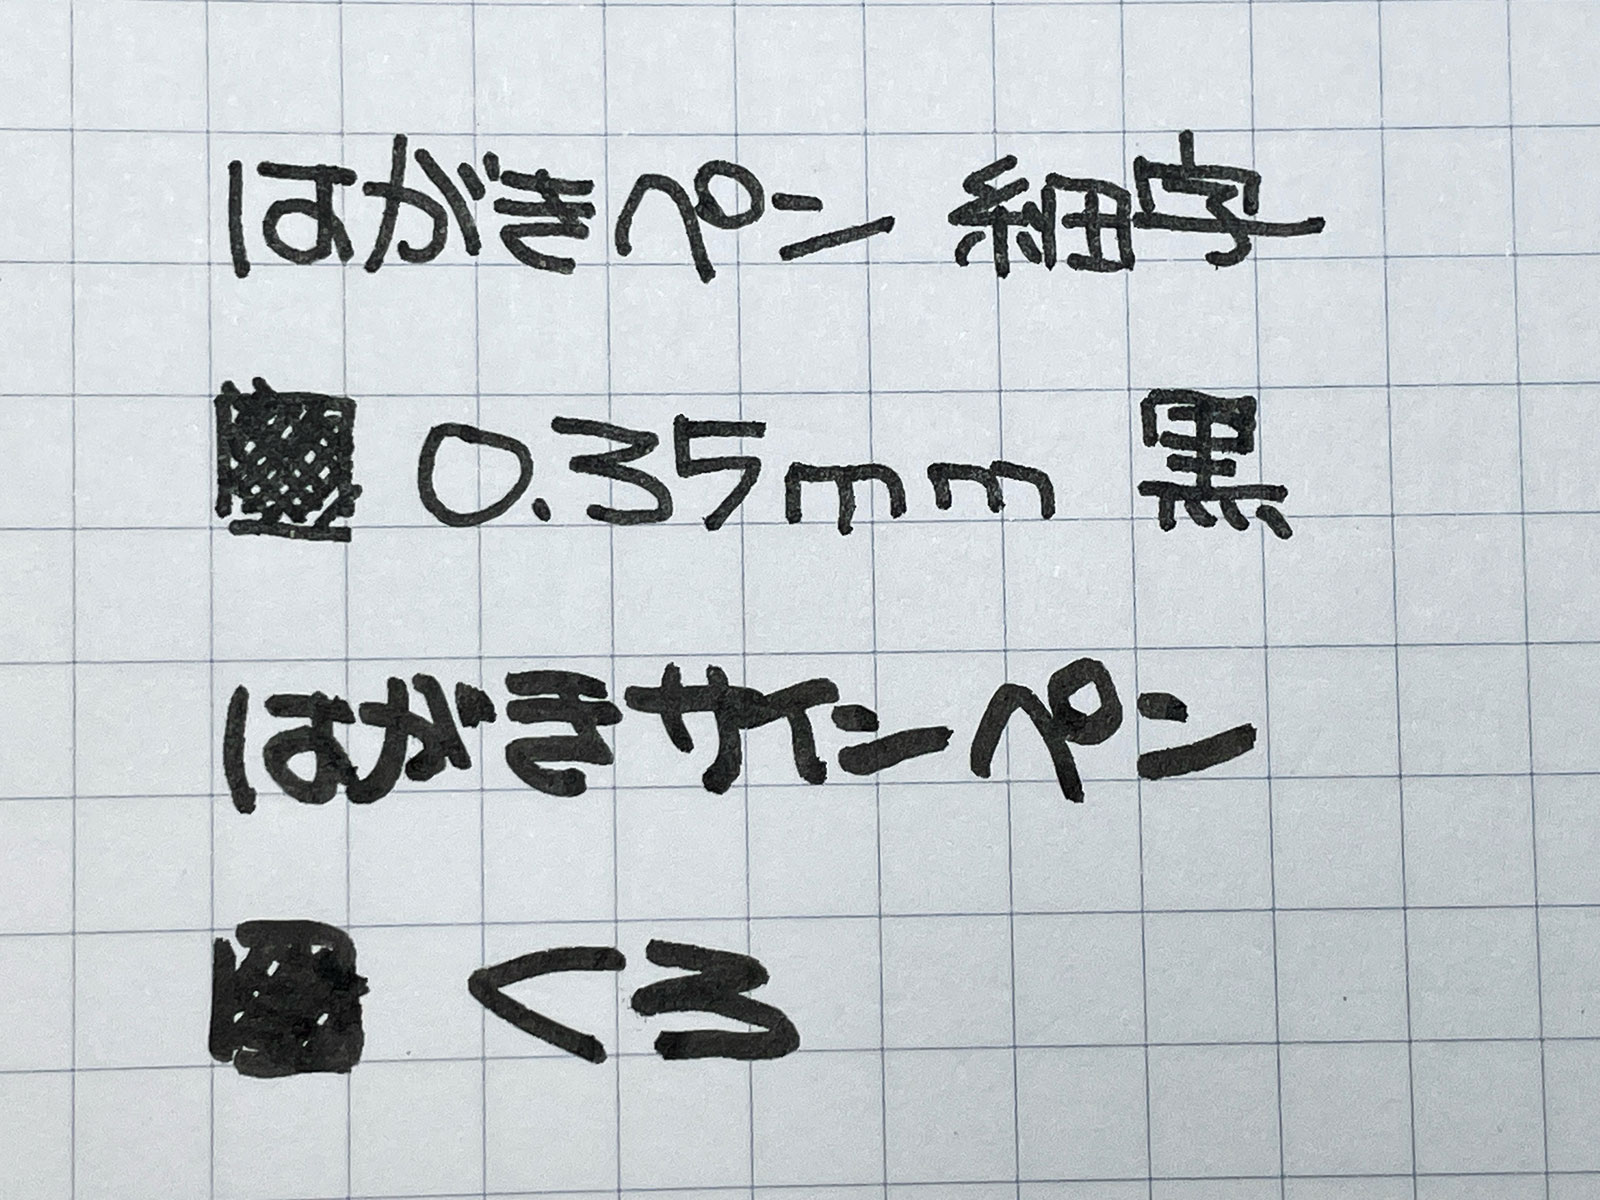 はがきペン 細字
■ 0.35mm 黒
はがきサインペン
■ くろ